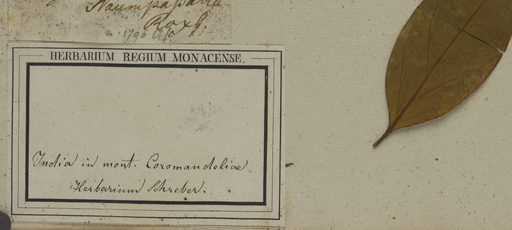 Roxb.
HERBARIUM REGIUM MONACENSE.
India in mont. Coromandeliae.
Herbarium Schreber.